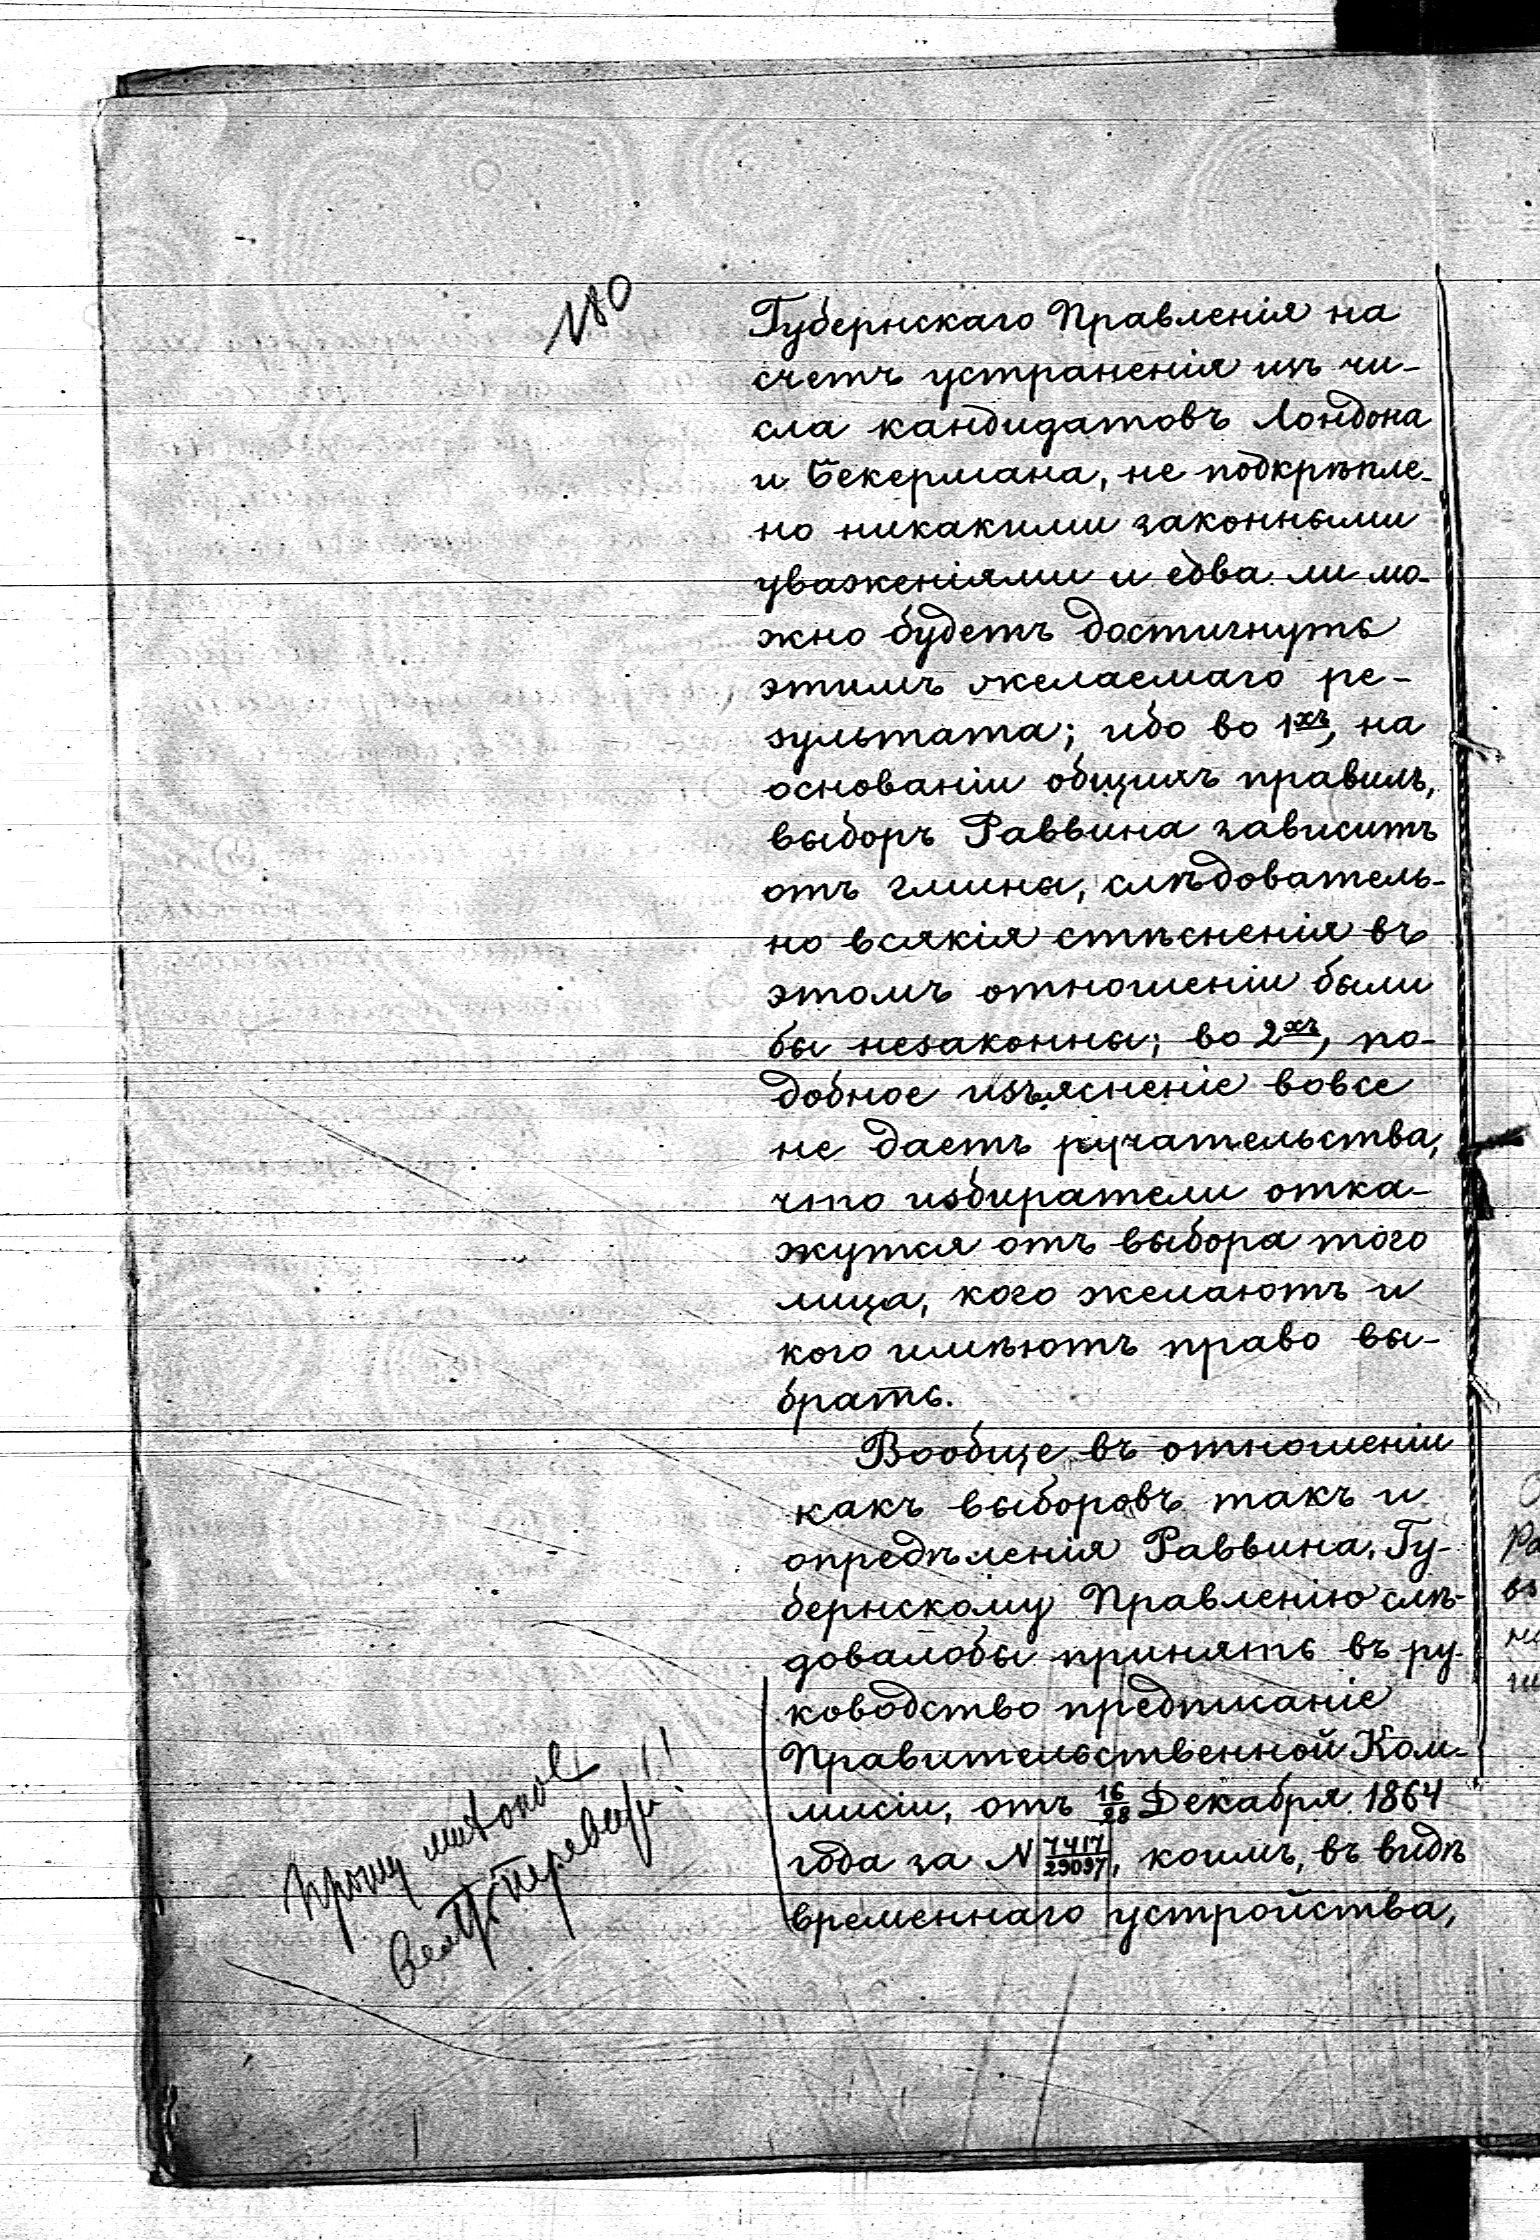 180
Губернскаго Правленія на
счетъ устраненія изъ чи-
сла кандидатовъ Лондона
и Бекермана, не подкрѣпле-
но никакими законными
уваженіями и едва ли мо-
жно будетъ достигнуть
этимъ желаемаго ре-
зультата; ибо во 1хъ, на
основаніи общихъ правилъ,
выборъ Раввина зависитъ
отъ гмины, слѣдователь-
но всякія стѣсненія въ
этомъ отношеніи были
бы незаконны; во 2хъ, по-
добное изъясненіе вовсе
не даетъ ручательства,
что избиратели отка-
жутся отъ выбора того
лица, кого желаютъ и
кого имѣютъ право вы-
брать.
Вообще въ отношеніи
какъ выборовъ такъ и
опредѣленія Раввина, Гу-
бернскому Правленію слѣ-
довалобы принять въ ру-
ководство предписаніе
Правительственной Ком-
мисіи, отъ 16/28 Декабря 1864
года за N 7417/29097, коимъ, въ видѣ
временнаго устройства,
Прошу